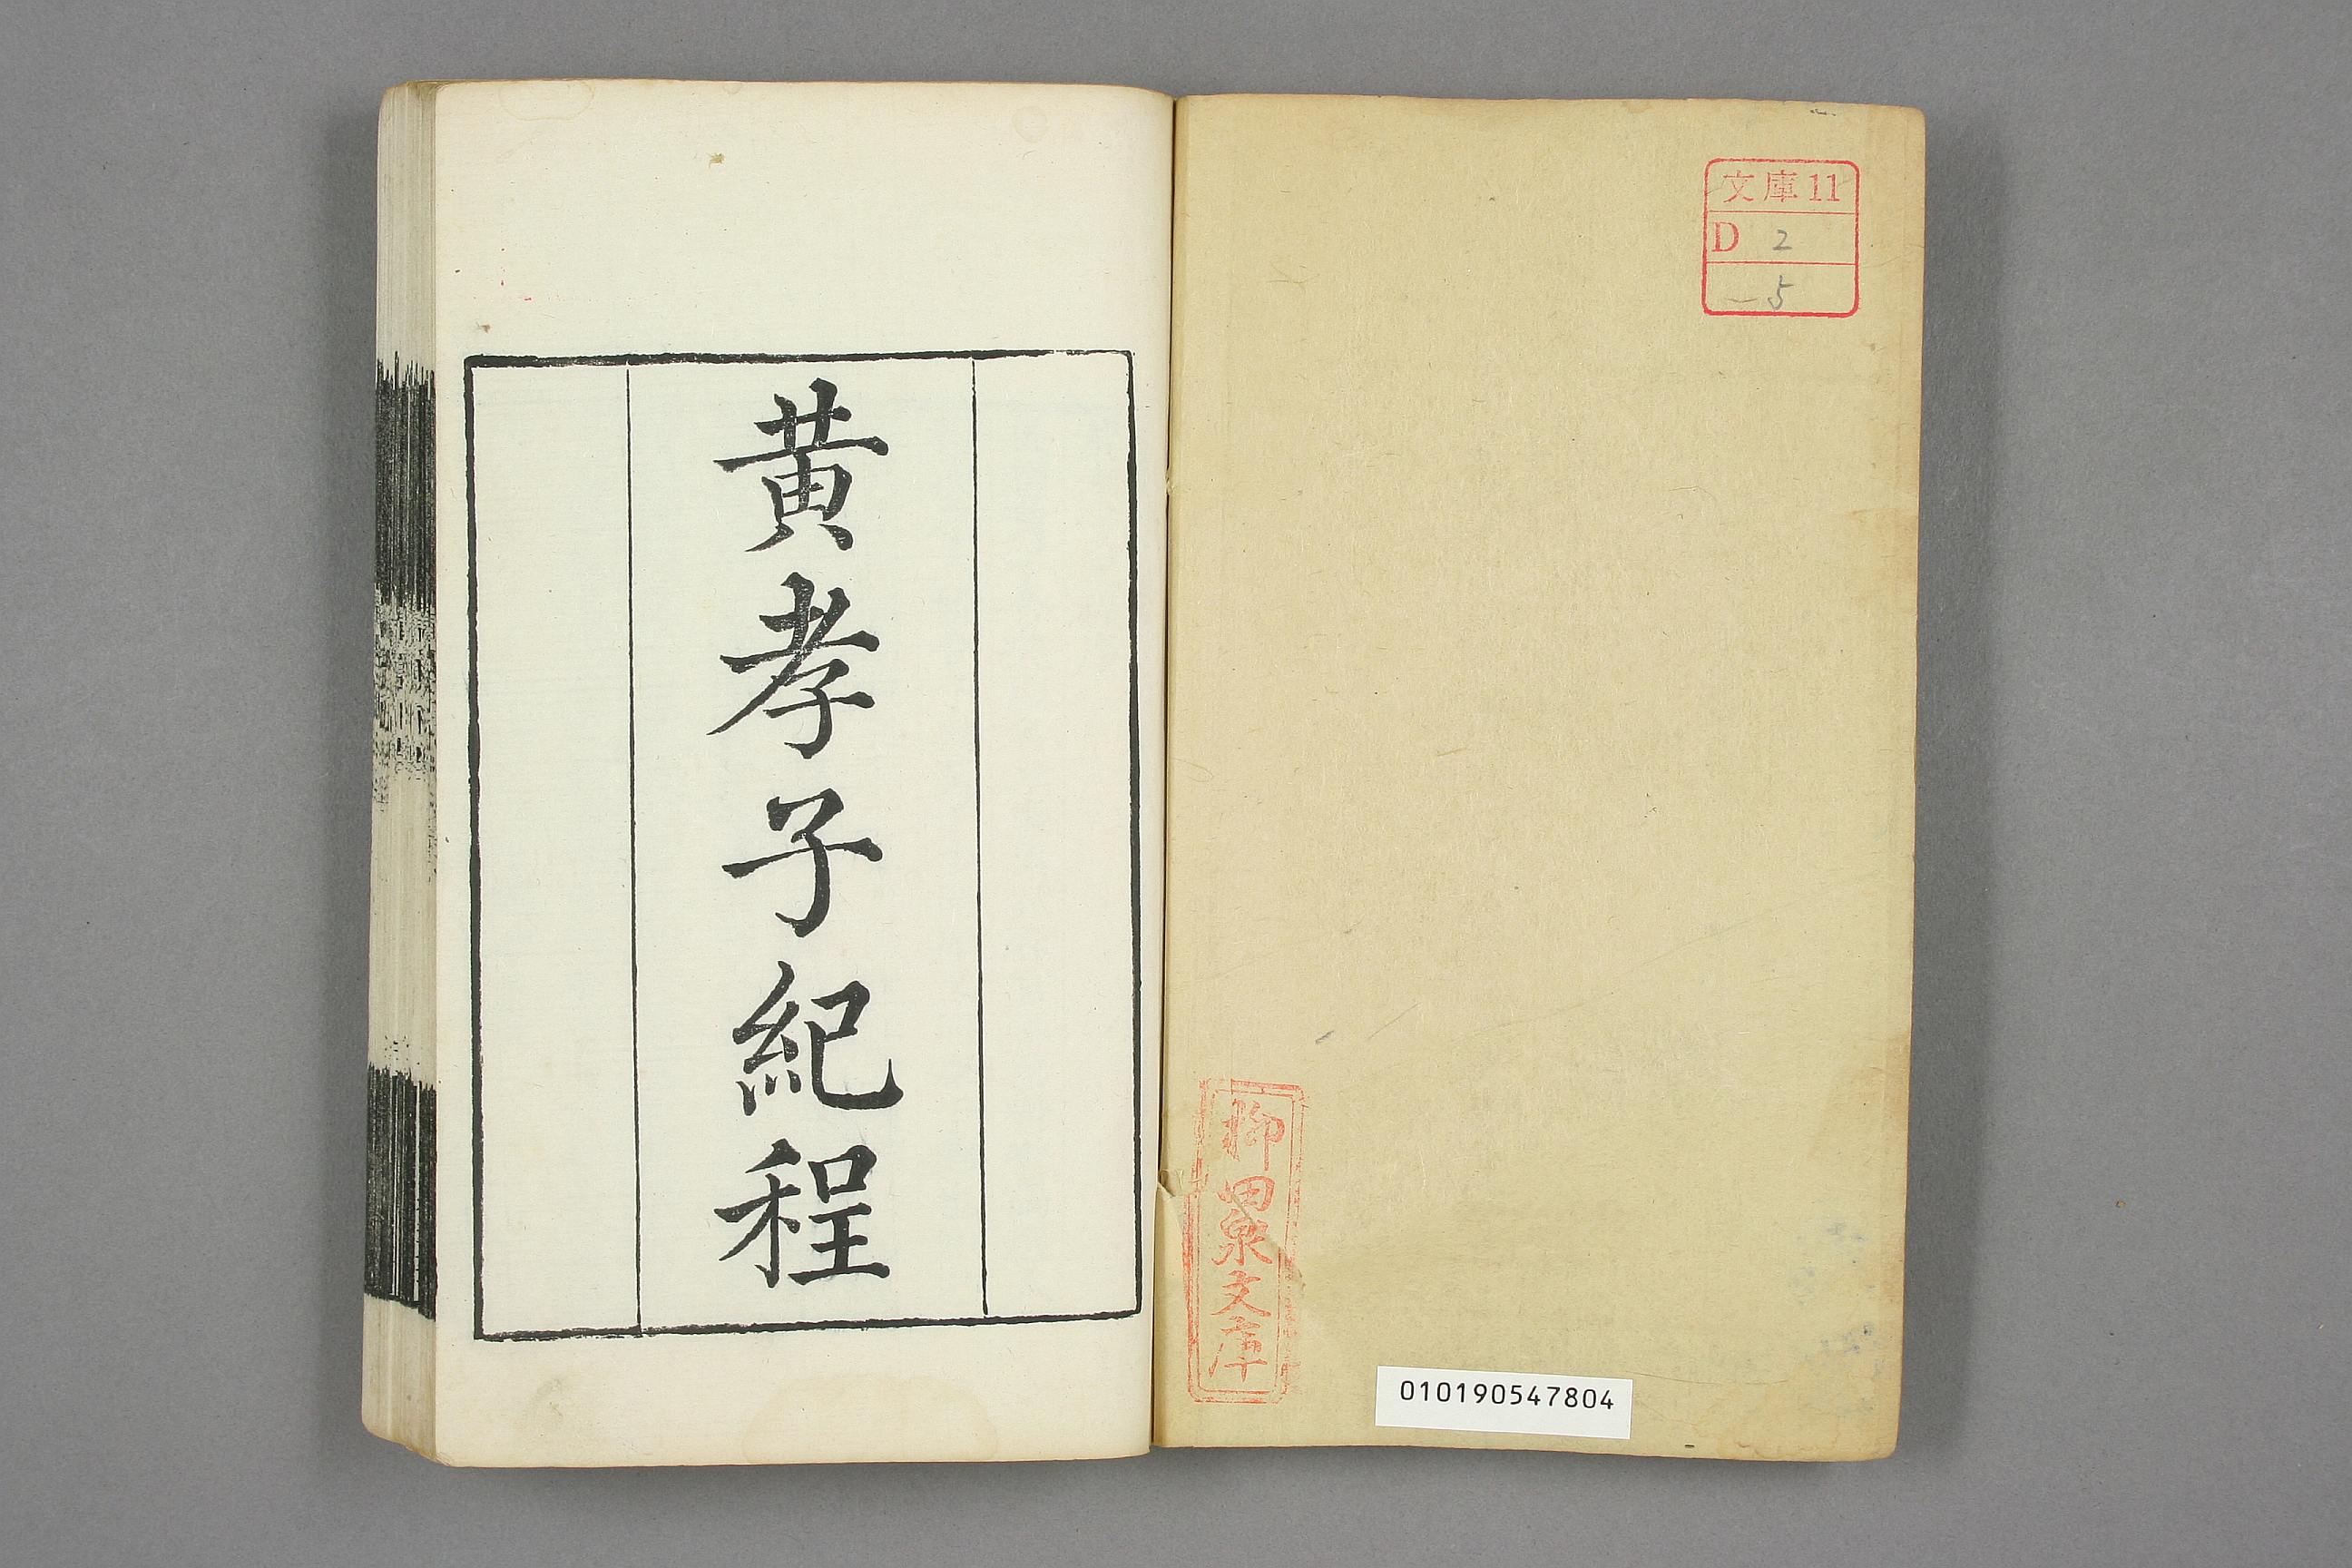 文庫11
D 2
5
柳田泉文庫
010190547804
黄孝子紀程